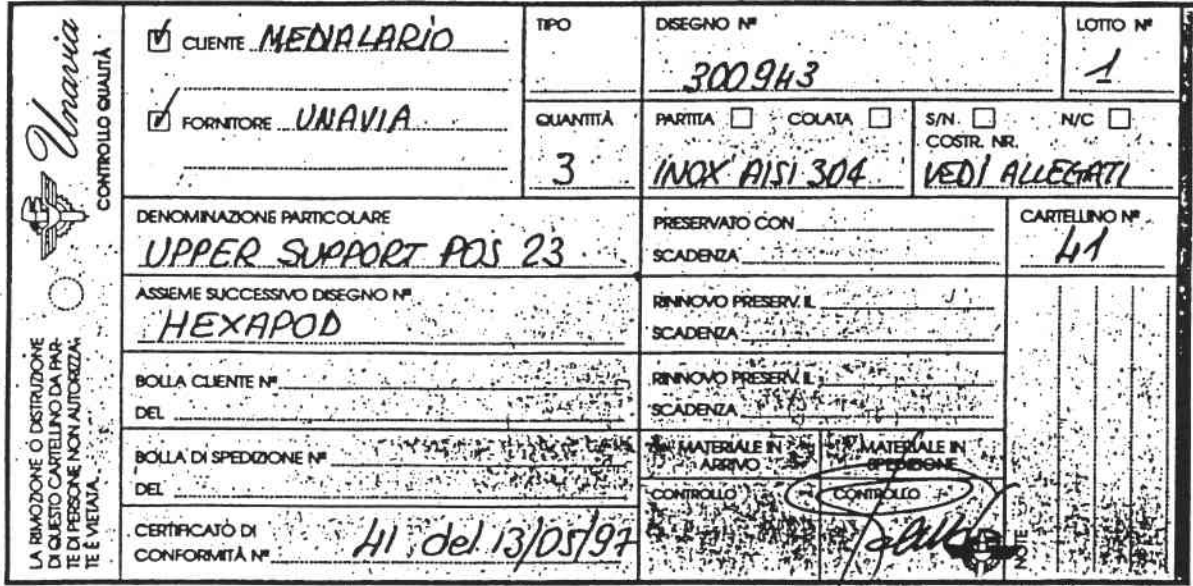 Unavia
CONTROLLO QUALITÀ
LA RIMOZIONE O DISTRUZIONE
DI QUESTO CARTELLINO DA PAR-
TE DI PERSONE NON AUTORIZZA-
TE È VIETATA.
CLIENTE MEDIALARIO
FORNITORE UNAVIA
TIPO
QUANTITÀ
3
DISEGNO Nº
300943
LOTTO Nº
1
PARTITA COLATA
INOX AISI 304
S/N N/C
COSTR. NR.
VEDI ALLEGATI
DENOMINAZIONE PARTICOLARE
UPPER SUPPORT POS 23
PRESERVATO CON
SCADENZA
CARTELLINO Nº
41
ASSIEME SUCCESSIVO DISEGNO Nº
HEXAPOD
RINNOVO PRESERV. IL
SCADENZA
BOLLA CLIENTE Nº
DEL
RINNOVO PRESERV. IL
SCADENZA
BOLLA DI SPEDIZIONE Nº
DEL
MATERIALE IN
ARRIVO
CONTROLLO
MATERIALE IN
SPEDIZIONE
CONTROLLO
CERTIFICATO DI
CONFORMITÀ Nº 41 del 13/05/97
NOTE